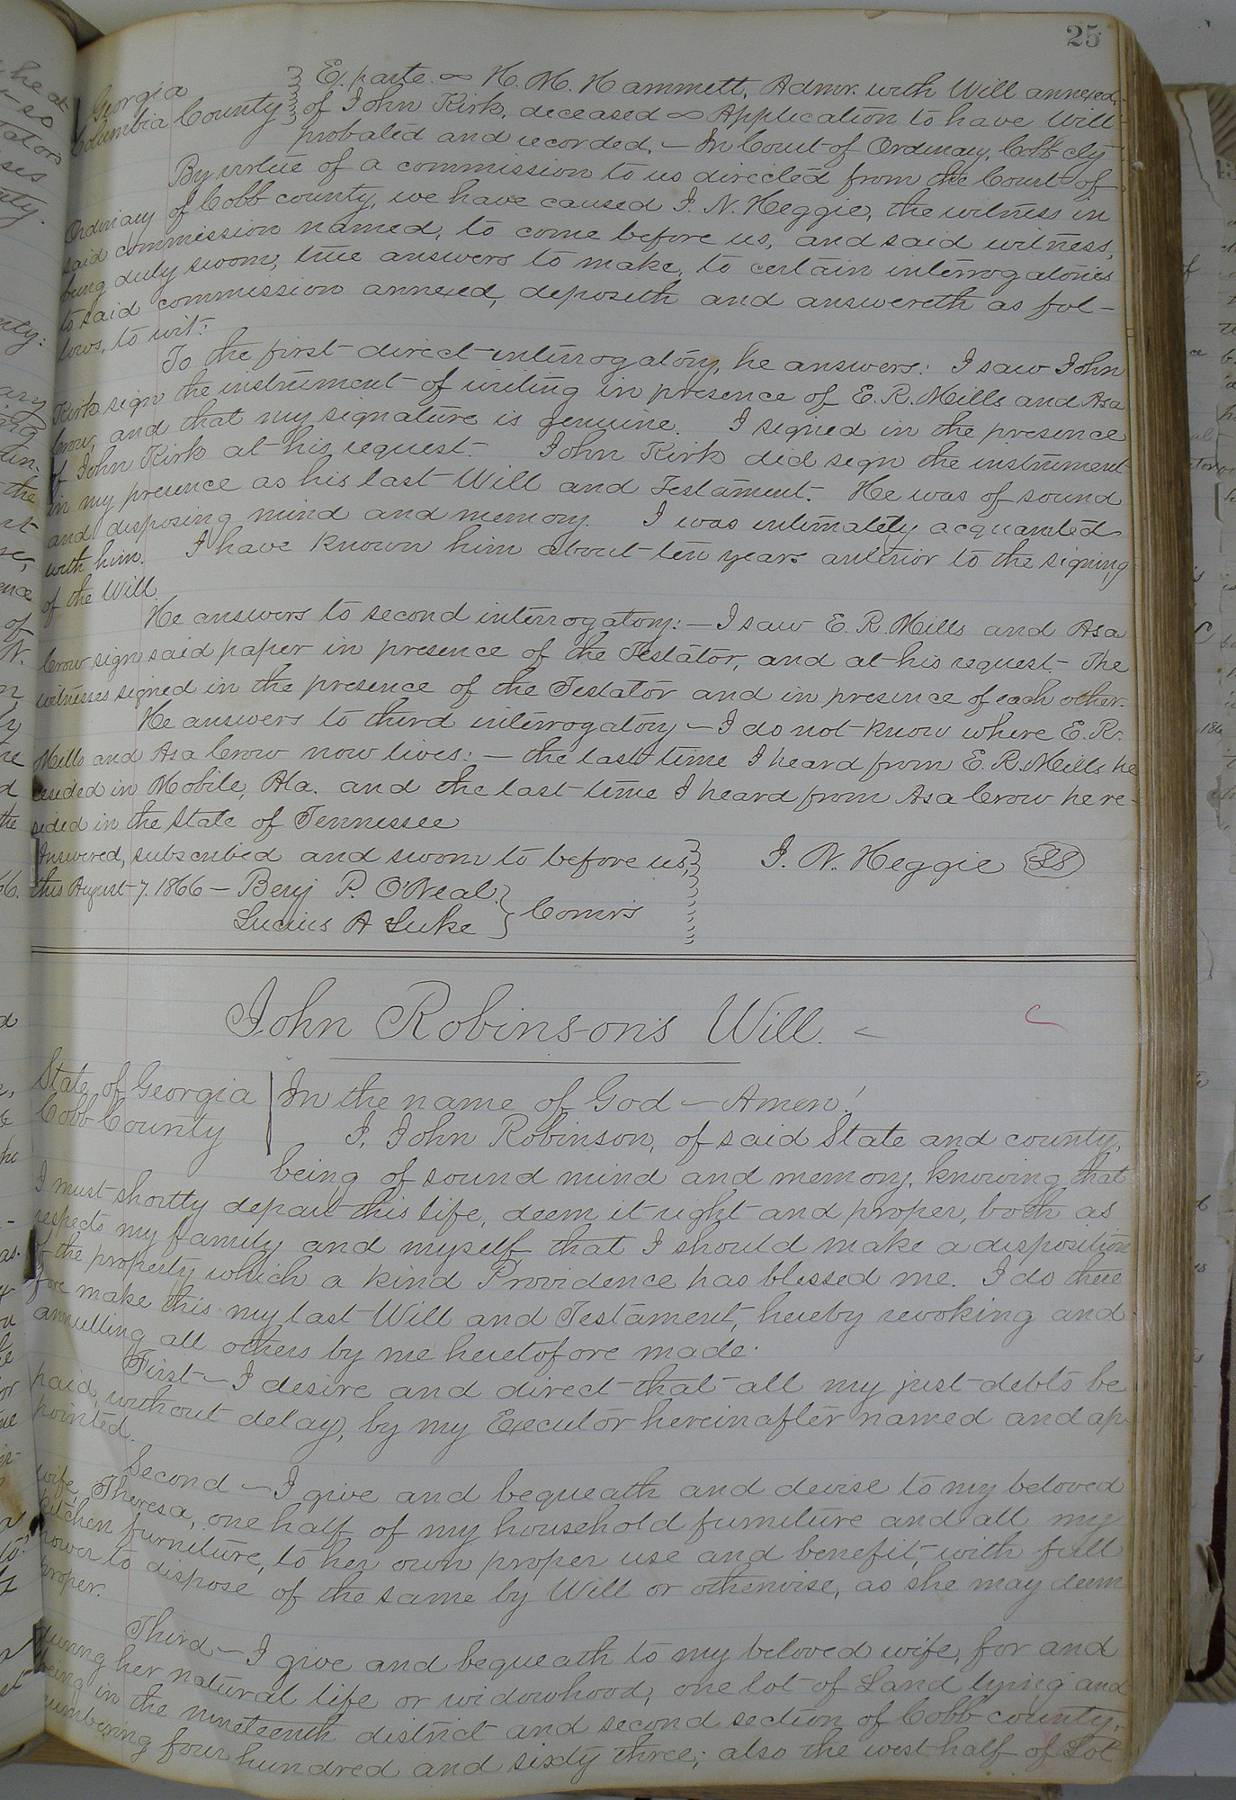 25
Georgia
Columbia County
Ex parte. ∞ H. M. Hammett, Admr. with Will annexed,
of John Kirk, deceased ∞ Application to have Will
probated and recorded. — In Court of Ordinary, Cobb cty
By virtue of a commission to us directed from the Court of
Ordinary of Cobb county, we have caused I. N. Heggie, the witness in
said commission named, to come before us, and said witness,
being duly sworn, true answers to make, to certain interrogatories
to said commission annexed, deposeth and answereth as fol-
lows, to wit:
To the first direct interrogatory, he answers: I saw John
Kirk sign the instrument of writing in presence of E. R. Mills and Asa
Crow, and that my signature is genuine. I signed in the presence
of John Kirk at his request. John Kirk did sign the instrument
in my presence as his last Will and Testament. He was of sound
and disposing mind and memory. I was intimately acquainted
with him. I have known him about ten years anterior to the signing
of the Will.
He answers to second interrogatory: — I saw E. R. Mills and Asa
Crow sign said paper in presence of the Testator, and at his request - The
witnesses signed in the presence of the Testator and in presence of each other.
He answers to third interrogatory — I do not know where E. R.
Mills and Asa Crow now lives: — the last time I heard from E. R. Mills he
resided in Mobile, Ala. and the last time I heard from Asa Crow he re-
sided in the State of Tennessee
Answered, subscribed and sworn to before us,
this August 7. 1866 — Benj P. O'Neal
Lucius A Luke
Comr's
I. N. Heggie LS
John Robinson's Will.
State of Georgia
Cobb County
In the name of God — Amen!
I, John Robinson, of said State and county,
being of sound mind and memory, knowing that
I must shortly depart this life, deem it right and proper, both as
respects my family and myself that I should make a disposition
of the property which a kind Providence has blessed me. I do there
fore make this my last Will and Testament, hereby revoking and
annulling all others by me heretofore made.
First — I desire and direct that all my just debts be
paid, without delay, by my Executor hereinafter named and ap-
pointed.
Second — I give and bequeath and devise to my beloved
wife, Theresa, one half of my household furniture and all my
kitchen furniture, to her own proper use and benefit, with full
power to dispose of the same by Will or otherwise, as she may deem
proper.
Third — I give and bequeath to my beloved wife, for and
during her natural life or widowhood, one lot of Land lying and
being in the nineteenth district and second section of Cobb county,
numbering four hundred and sixty three; also the west half of Lot